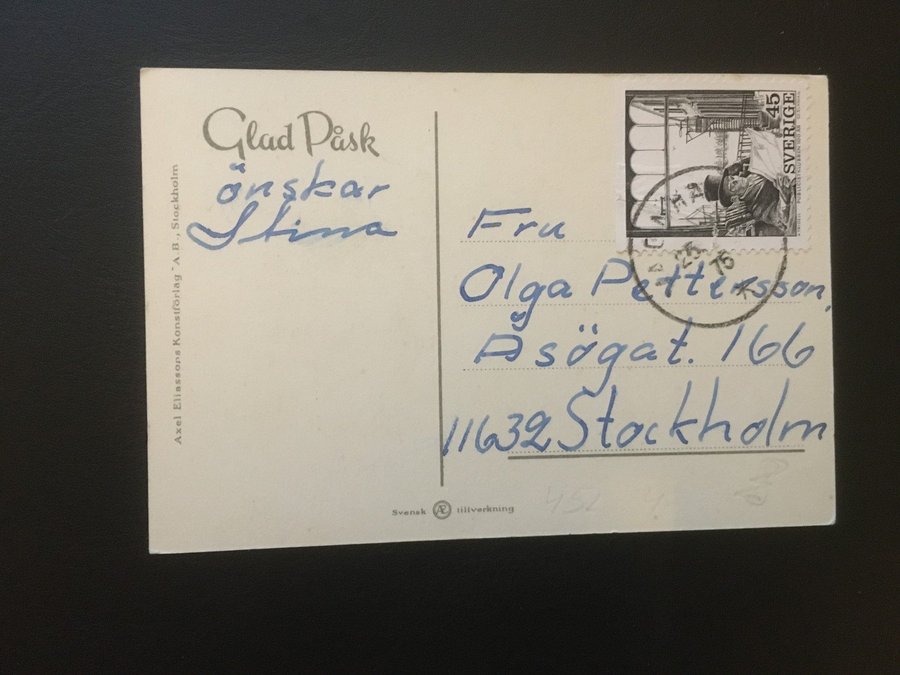 Glad Påsk
önskar
Stina
Axel Eliassons Konstförlag A.B., Stockholm
45
SVERIGE
25
75
Fru
Olga Pettersson,
Åsögat. 166
11632 Stockholm
Svensk Æ tillverkning